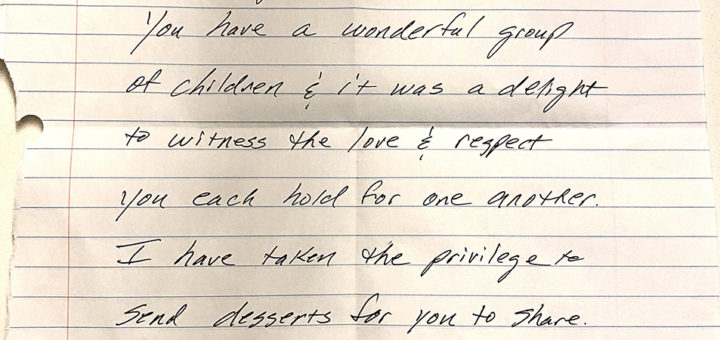 You have a wonderful group
of children & it was a delight
to witness the love & respect
you each hold for one another.
I have taken the privilege to
send desserts for you to share.